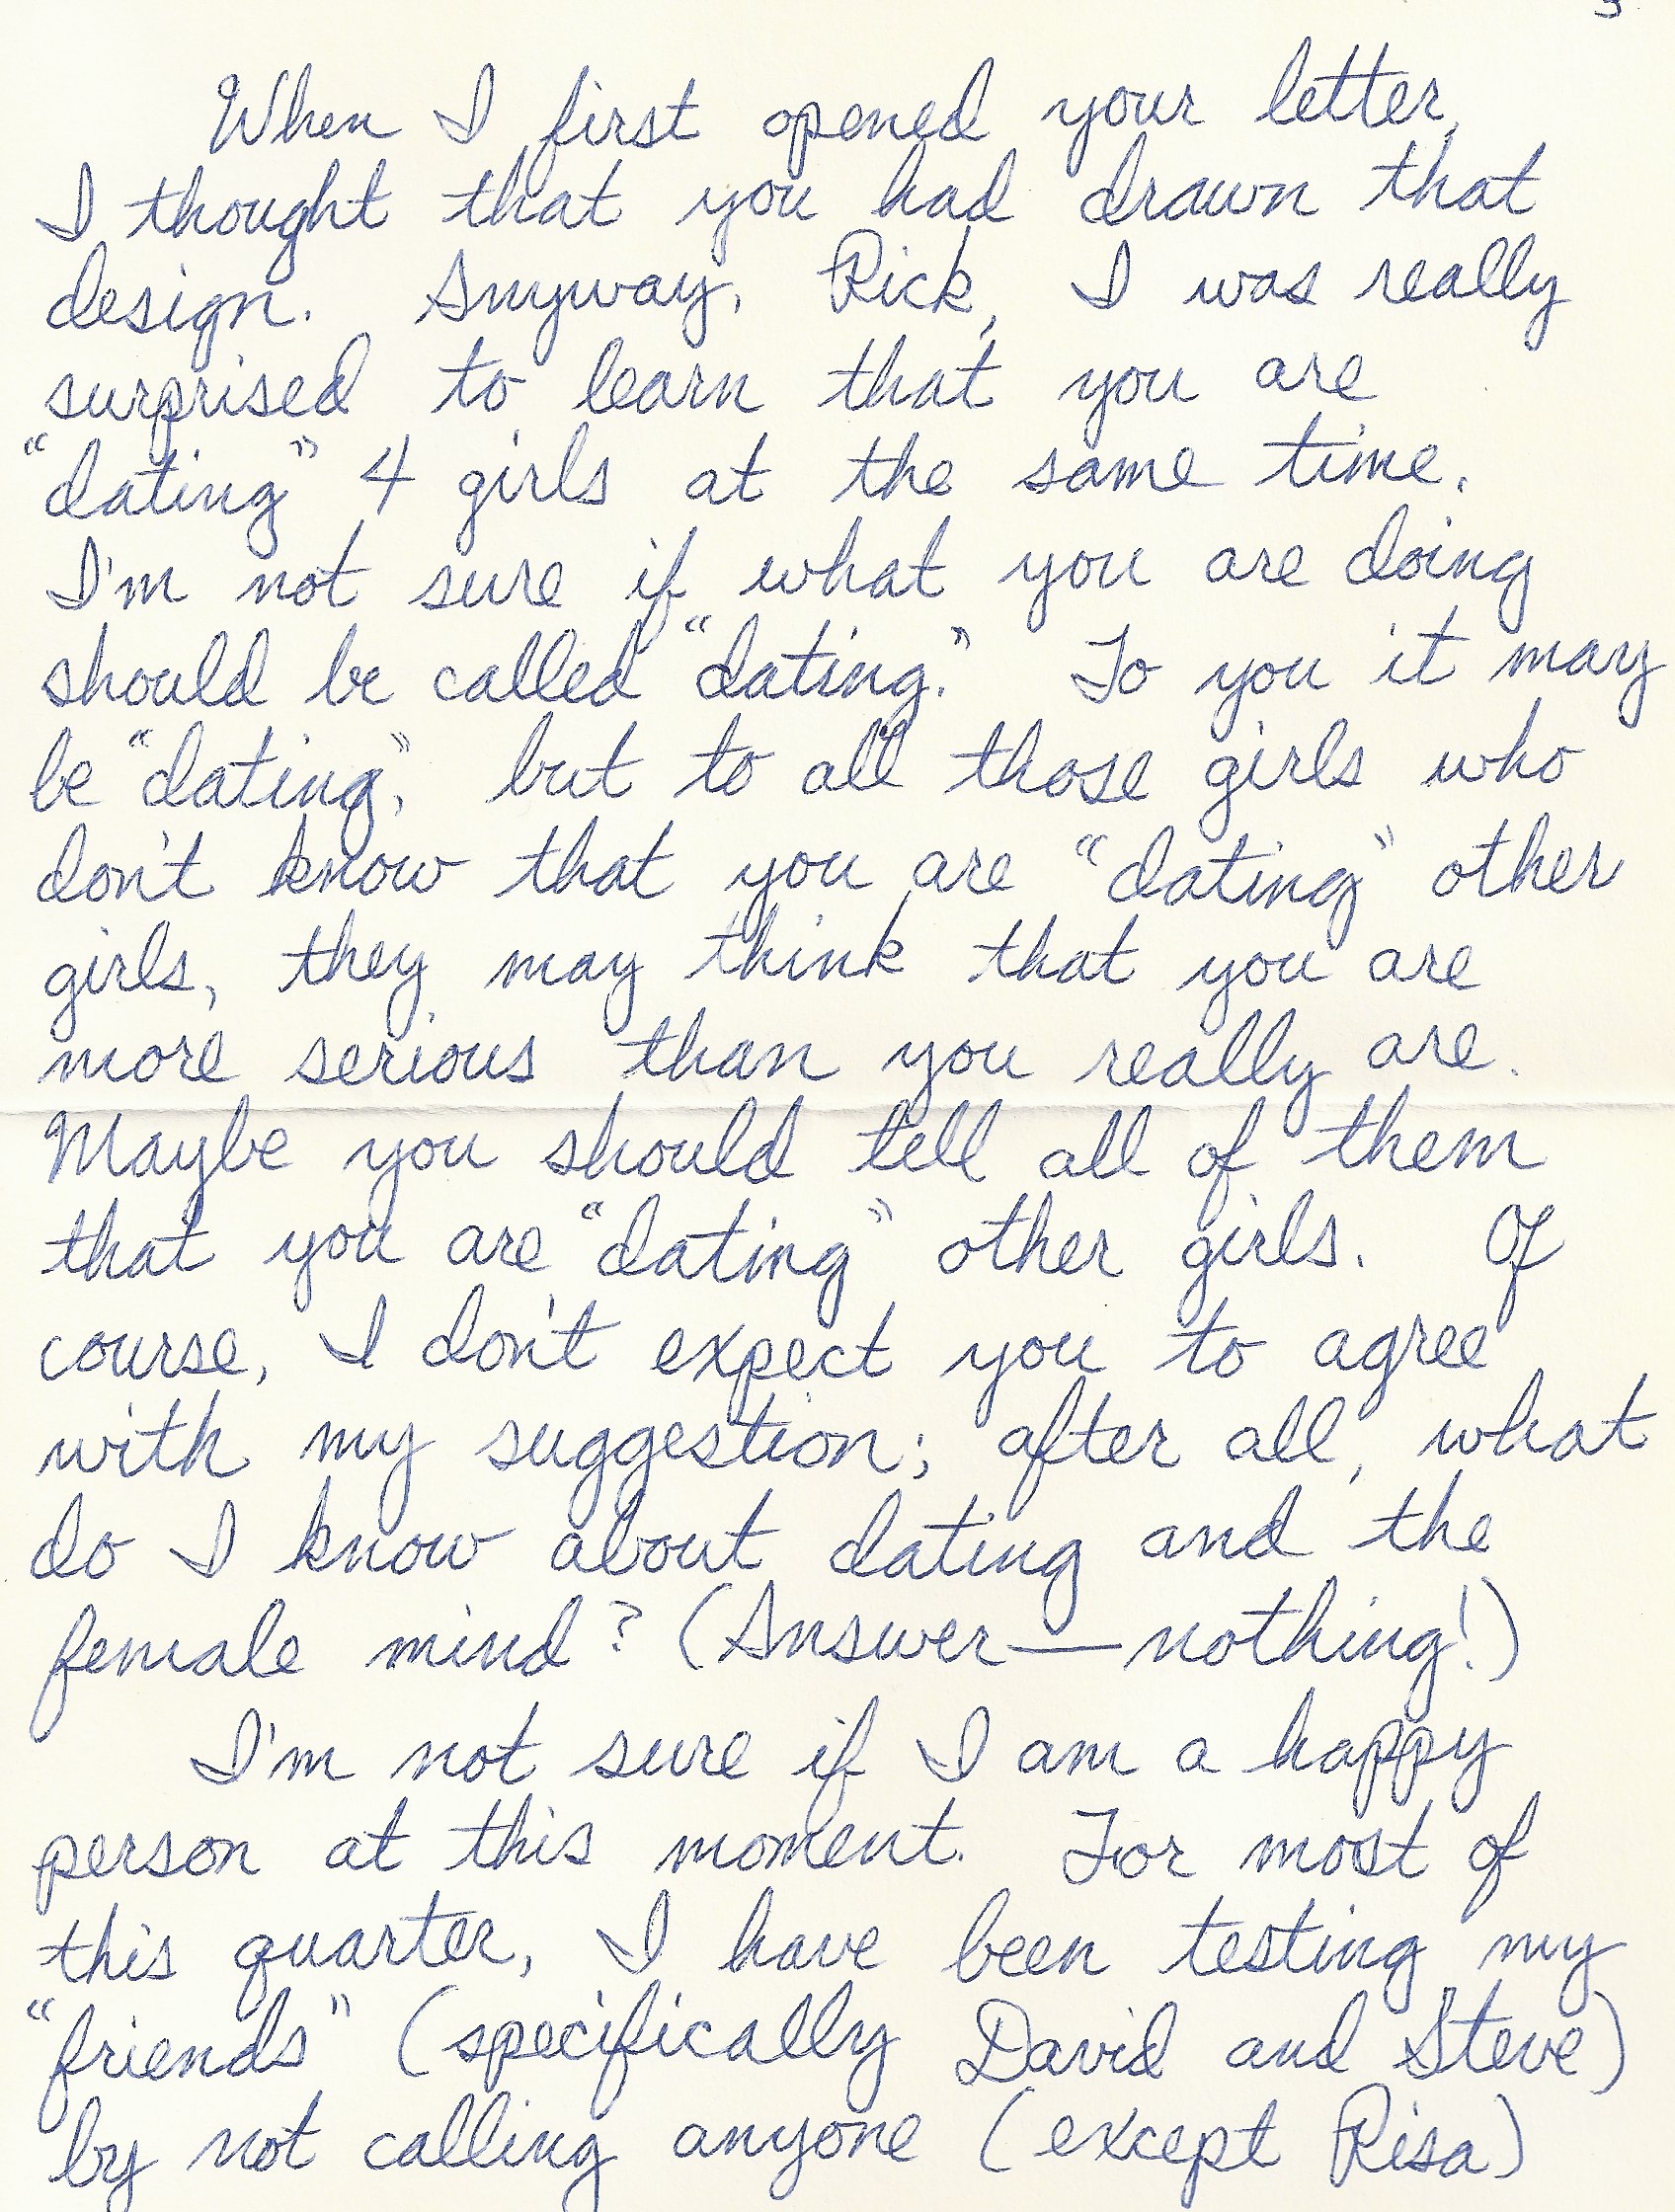 When I first opened your letter,
I thought that you had drawn that
design. Anyway, Rick, I was really
surprised to learn that you are
“dating” 4 girls at the same time.
I'm not sure if what you are doing
should be called “dating.” To you it may
be “dating,” but to all those girls who
don't know that you are “dating” other
girls, they may think that you are
more serious than you really are.
Maybe you should tell all of them
that you are “dating” other girls. Of
course, I don't expect you to agree
with my suggestion; after all, what
do I know about dating and the
female mind? (Answer—nothing!)
I'm not sure if I am a happy
person at this moment. For most of
this quarter, I have been testing my
“friends” (specifically David and Steve)
by not calling anyone (except Risa)